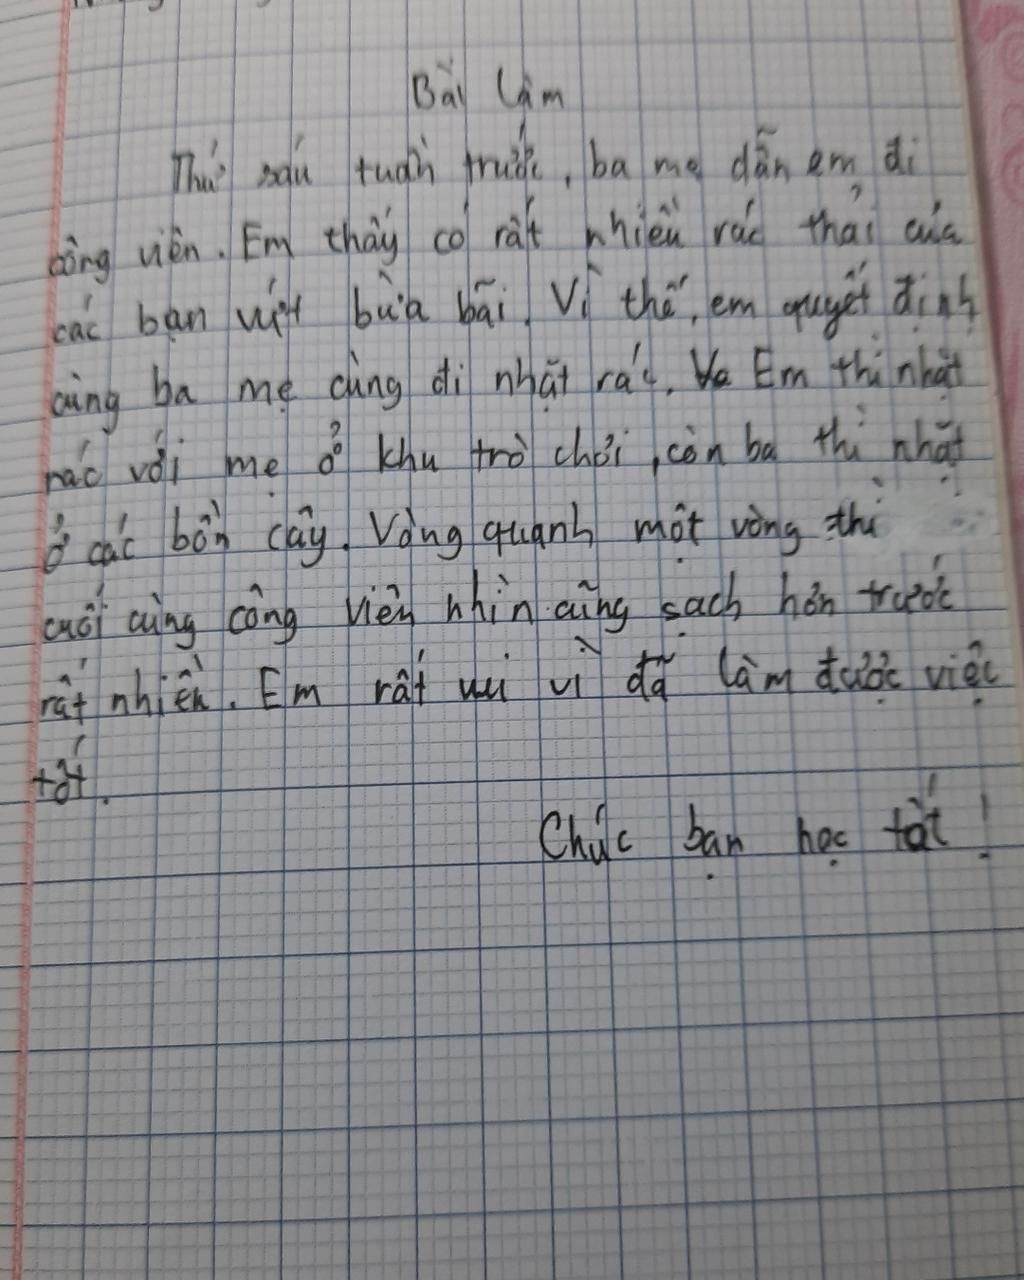 Bài làm
Thứ sáu tuần trước, ba mẹ dẫn em đi
công viên. Em thấy có rất nhiều rác thải của
các bạn vứt bừa bãi. Vì thế, em quyết định
cùng ba mẹ cùng đi nhặt rác. Em thì nhặt
rác với mẹ ở khu trò chơi, còn ba thì nhặt
ở các bồn cây. Vòng quanh một vòng thì
cuối cùng công viên nhìn cũng sạch hơn trước
rất nhiều. Em rất vui vì đã làm được việc
tốt.
Chúc bạn học tốt!